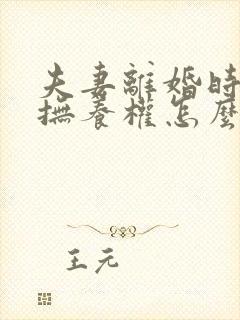 夫妻離婚時
撫養權怎麼
王元